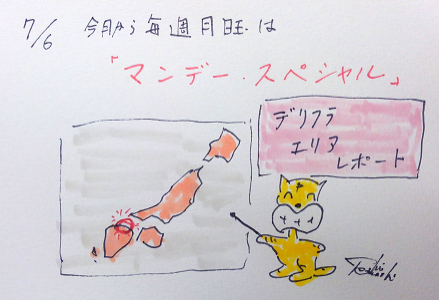 7/6 今月から毎週月曜は
「マンデー・スペシャル」
デリフラ
エリア
レポート